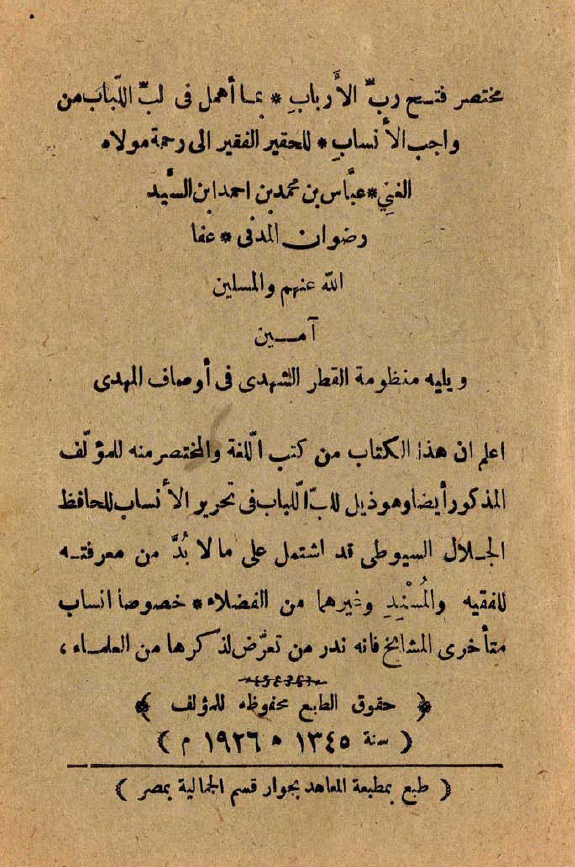 مختصر فتح ربّ الأَربابِ * بما أهمل فى لبّ اللّباب من
واجب الأنسابِ * للحقير الفقير الى رحمة مولاه
الغنيِ * عبَّاس بن محمد بن احمد ابن السَّيد
رضوان المدنى * عفا
الله عنهم والمسلمين
آمـــين
ويليه منظومة القطر الشهدى فى أوصاف المهدى
اعلم ان هذا الكتاب من كتب اللّغة والمختصر منه للمؤلّف
المذكور أيضا وهو ذيل للبّ اللّباب فى تحرير الأنساب للحافظ
الجلال السيوطى قد اشتمل على ما لا بُدَّ من معرفته
للفقيه والمُسْنِدِ وغيرهما من الفضلاء * خصوصا انساب
متأخرى المشائخ فانه ندر من تعرّض لذكرها من العلماء ،
﴿ حقوق الطبع محفوظه للمؤلف ﴾
( سنة ١٣٤٥ ه ١٩٢٦ م )
( طبع بمطبعة المعاهد بجوار قسم الجمالية بمصر )